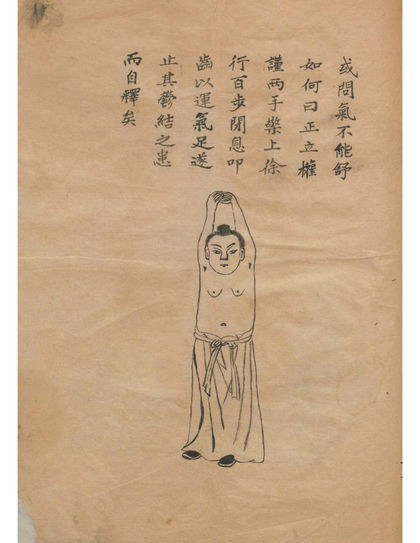 或問氣不能舒
如何曰正立權
謹兩手上徐
行百步閉息叩
齒以運氣足遂
止其鬱結之患
而自釋矣